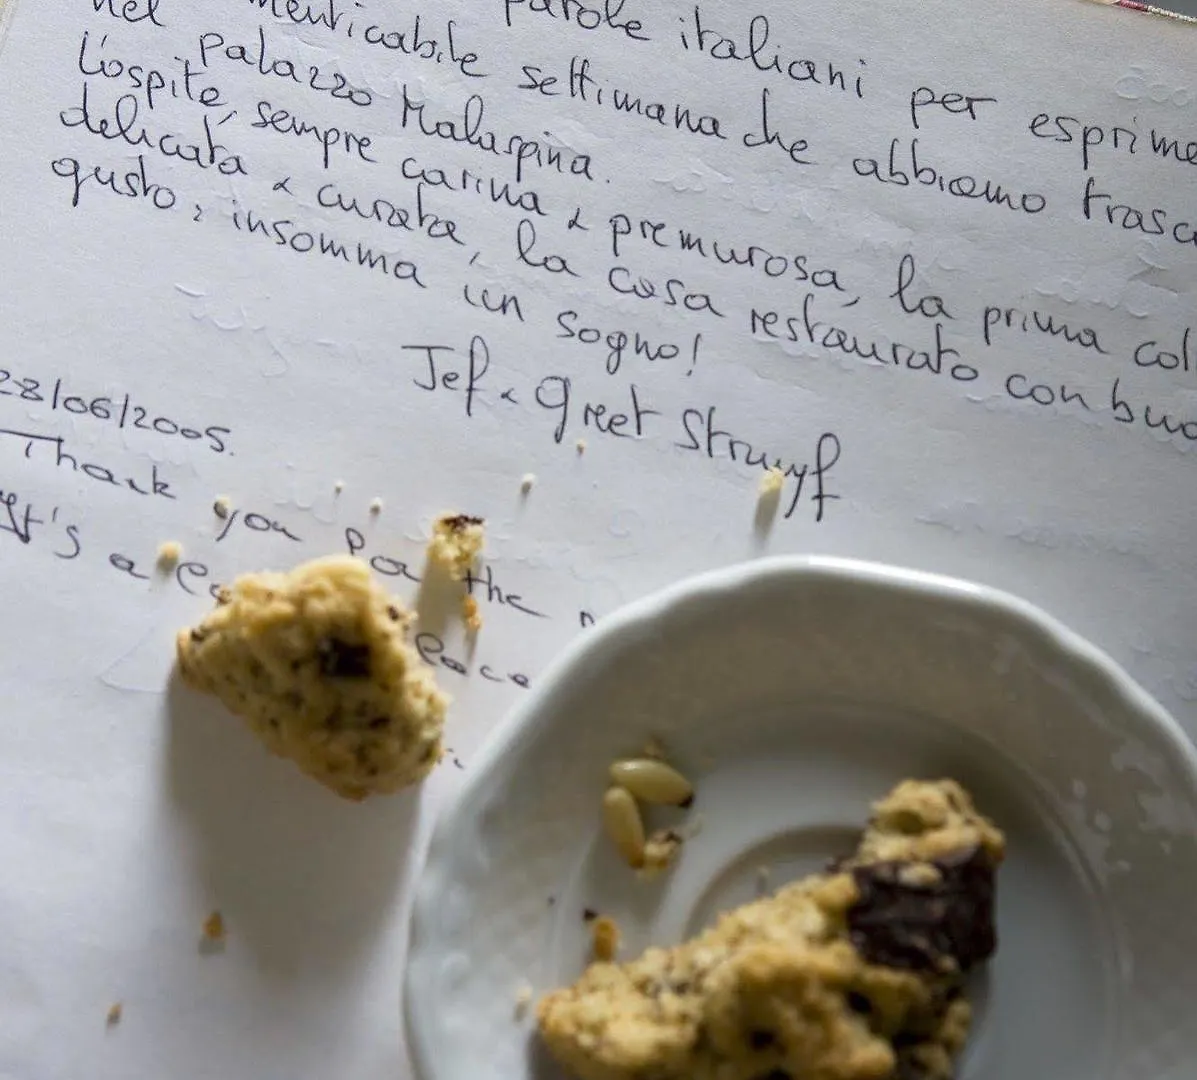 parole italiani per esprime
menticabile settimana che abbiamo trasc
nel palazzo Malaspina.
L'ospite, sempre carina & premurosa, la prima col
delicata & curata, la casa restaurato con buo
gusto, insomma un sogno!
Jef & Greet Struyf
28/06/2005.
Thank you for the n
It's a